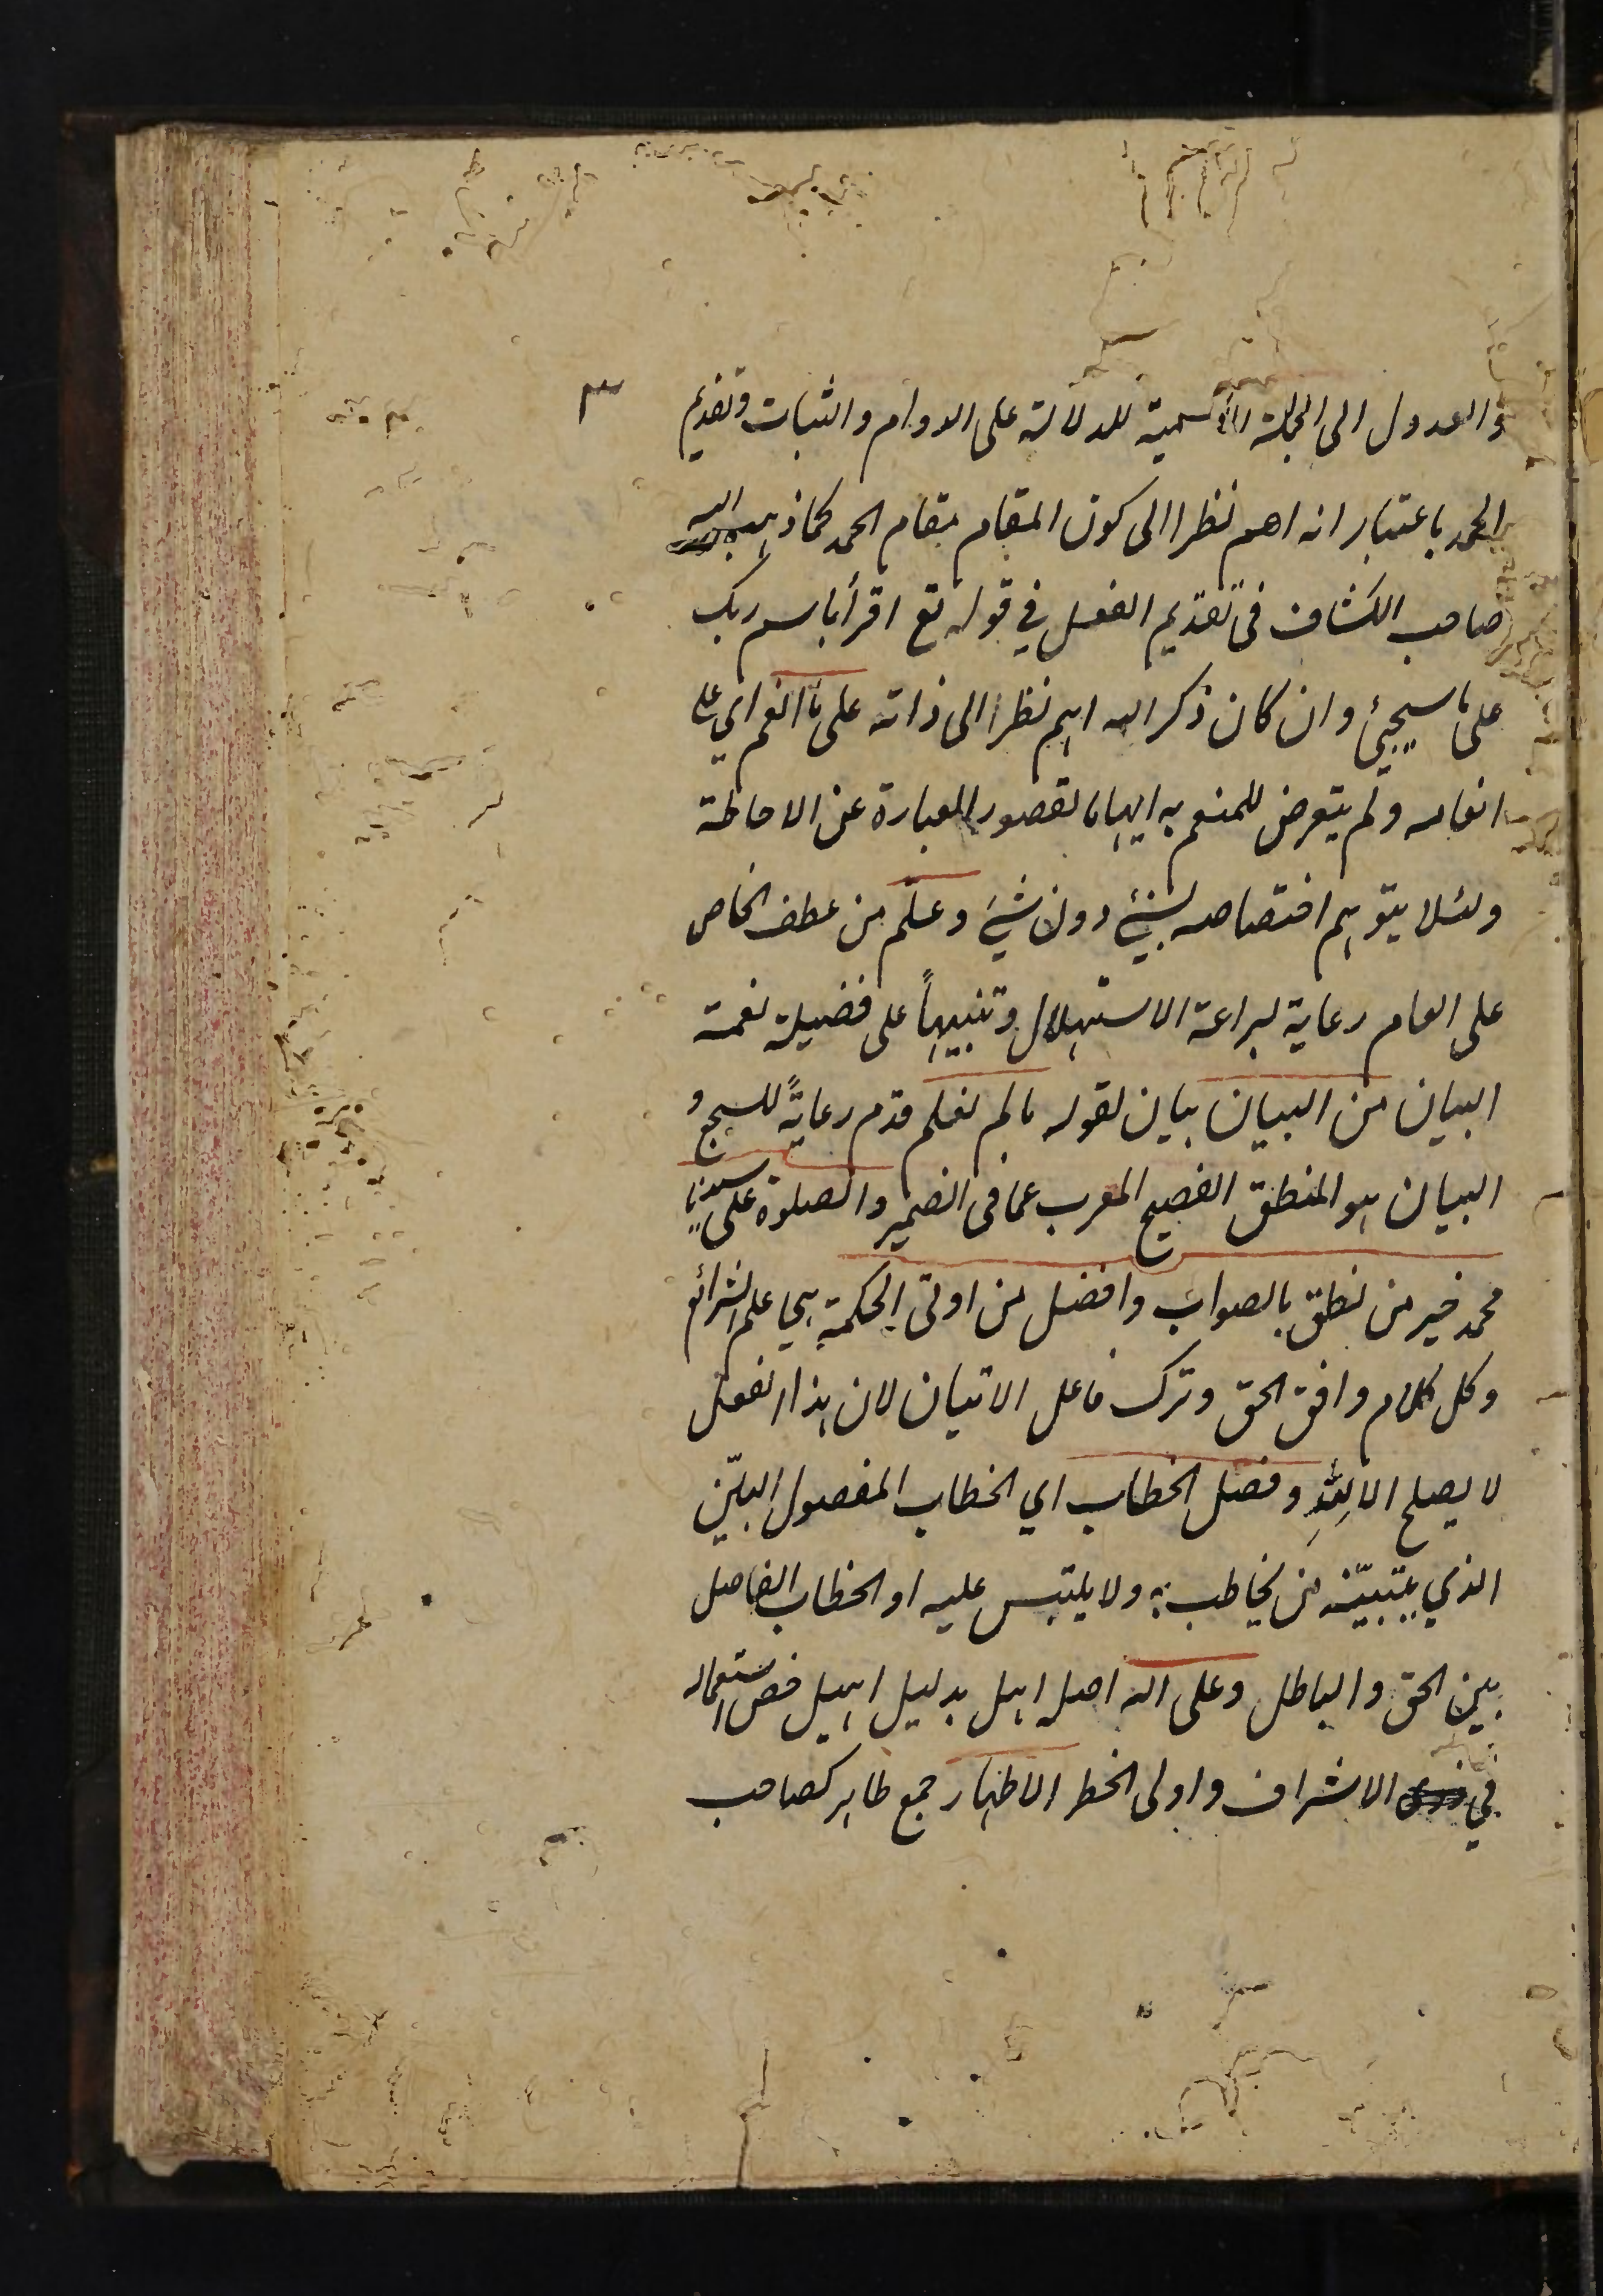 ٣
والعدول الى الجملة الاسمية للدلالة على الدوام والثبات وتقديم
الحمد باعتبار انه اهم نظرا الى كون المقام مقام الحمد كما ذهب اليه
صاحب الكشاف فى تقديم الفعل في قوله تع اقرأ باسم ربك
على ما سيجيئ وان كان ذكر الله اهم نظرا الى ذاته على ما انعم اي على
انعامه ولم يتعرض للمنعم به ايهاما لقصور العبارة عن الاحاطة
ولئلا يتوهم اختصاصه بشيئ دون شيئ وعلّم من عطف الخاص
على العام رعاية لبراعة الاستهلال وتنبيهاً على فضيلة نعمة
البيان من البيان بيان لقوله ما لم نعلم قدم رعايةً للسجع و
البيان هو المنطق الفصيح المعرب عما فى الضمير والصلوة على سيدنا
محمد خير من نطق بالصواب وافضل من اوتى الحكمة هي علم الشرائع
وكل كلام وافق الحق وترك فاعل الاتيان لان هذا الفعل
لا يصلح الا لله وفصل الخطاب اي الخطاب المفصول البيّن
الذي يتبيّنه من يخاطب به ولا يلتبس عليه او الخطاب الفاصل
بين الحق والباطل وعلى اله اصله اهل بدليل اهيل خص استعماله
في الاشراف واولى الخطر الاطهار جمع طاهر كصاحب